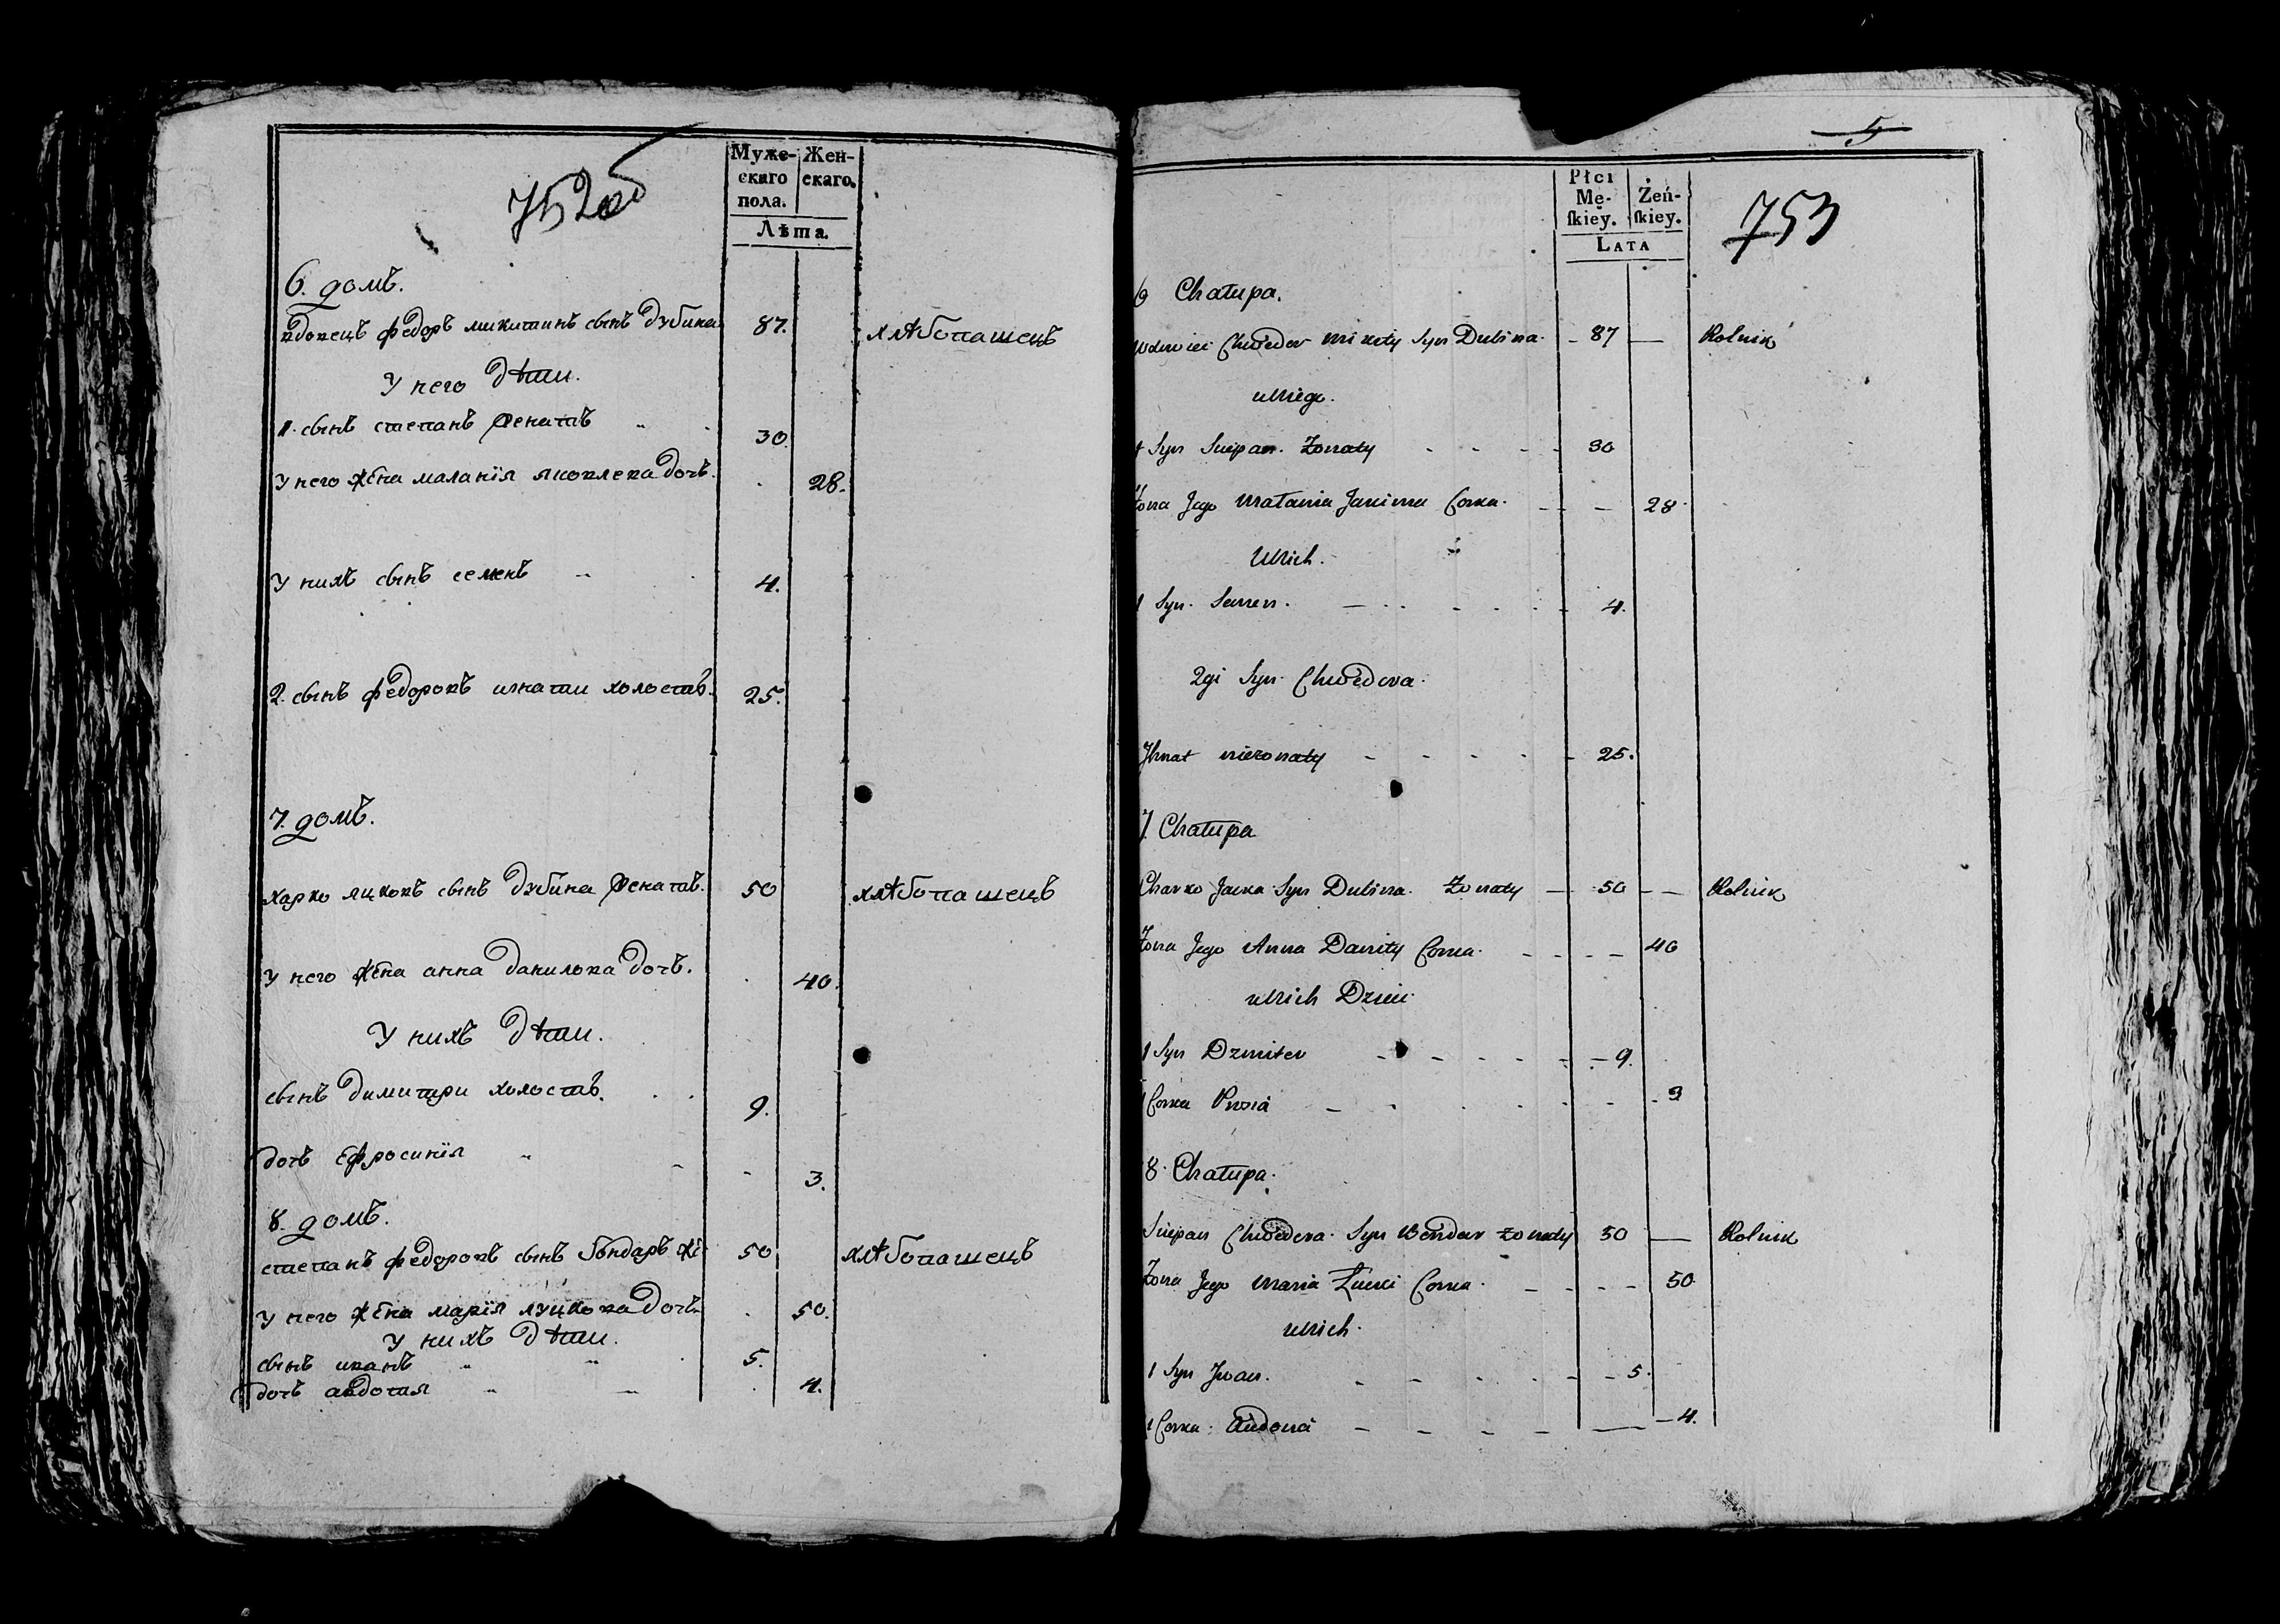 752об
Муже-
скаго
пола.
Жен-
скаго.
Лѣта.
6. домъ.
вдовецъ федоръ микитинъ сынъ дубина 87. хлѣбопашецъ
У него дѣти.
1. сынъ степанъ женатъ 30.
У него жена маланія яковлева дочь. 28.
У нихъ сынъ семенъ 4.
2. сынъ федоровъ игнати холостъ. 25.
7. домъ.
харко яцковъ сынъ дубина женатъ. 50 хлѣбопашецъ
У него жена анна данилова дочь. 40.
У нихъ дѣти.
сынъ димитри холостъ. 9.
дочь Ефросинія 3.
8. домъ.
степанъ федоровъ сынъ бондарь же 50 хлѣбопашецъ
У него жена марія луцкова дочь 50.
У нихъ дѣти.
сынъ иванъ 5.
дочь авдотия 4.
5
Płci
Mę-
ſkiey.
Żeń-
ſkiey.
LATA
753
6 Chałupa.
Wdowiec Chwedor Mikity Syn Dubina. 87 Rolnik
u Niego.
1 Syn Sciepan. Żonaty 30
Żona Jego Małania Jakima Corka. 28
U Nich.
1 Syn. Semen. 4.
2gi Syn. Chwedora.
Ihnat nieżonaty 25.
7. Chałupa
Charko Jacka Syn Dubina. Żonaty 50 Rolnik
Żona Jego Anna Daniły Corka. 40
u Nich Dzieci.
1 Syn Dzmiter 9.
1 Corka Prosia 3
8. Chałupa.
Sciepan Chwedora. Syn Bondar żonaty 50 Rolnik
Żona Jego Maria Łucki Corka. 50
u Nich.
1 Syn Jwan. 5.
1 Corka. Audocia 4.